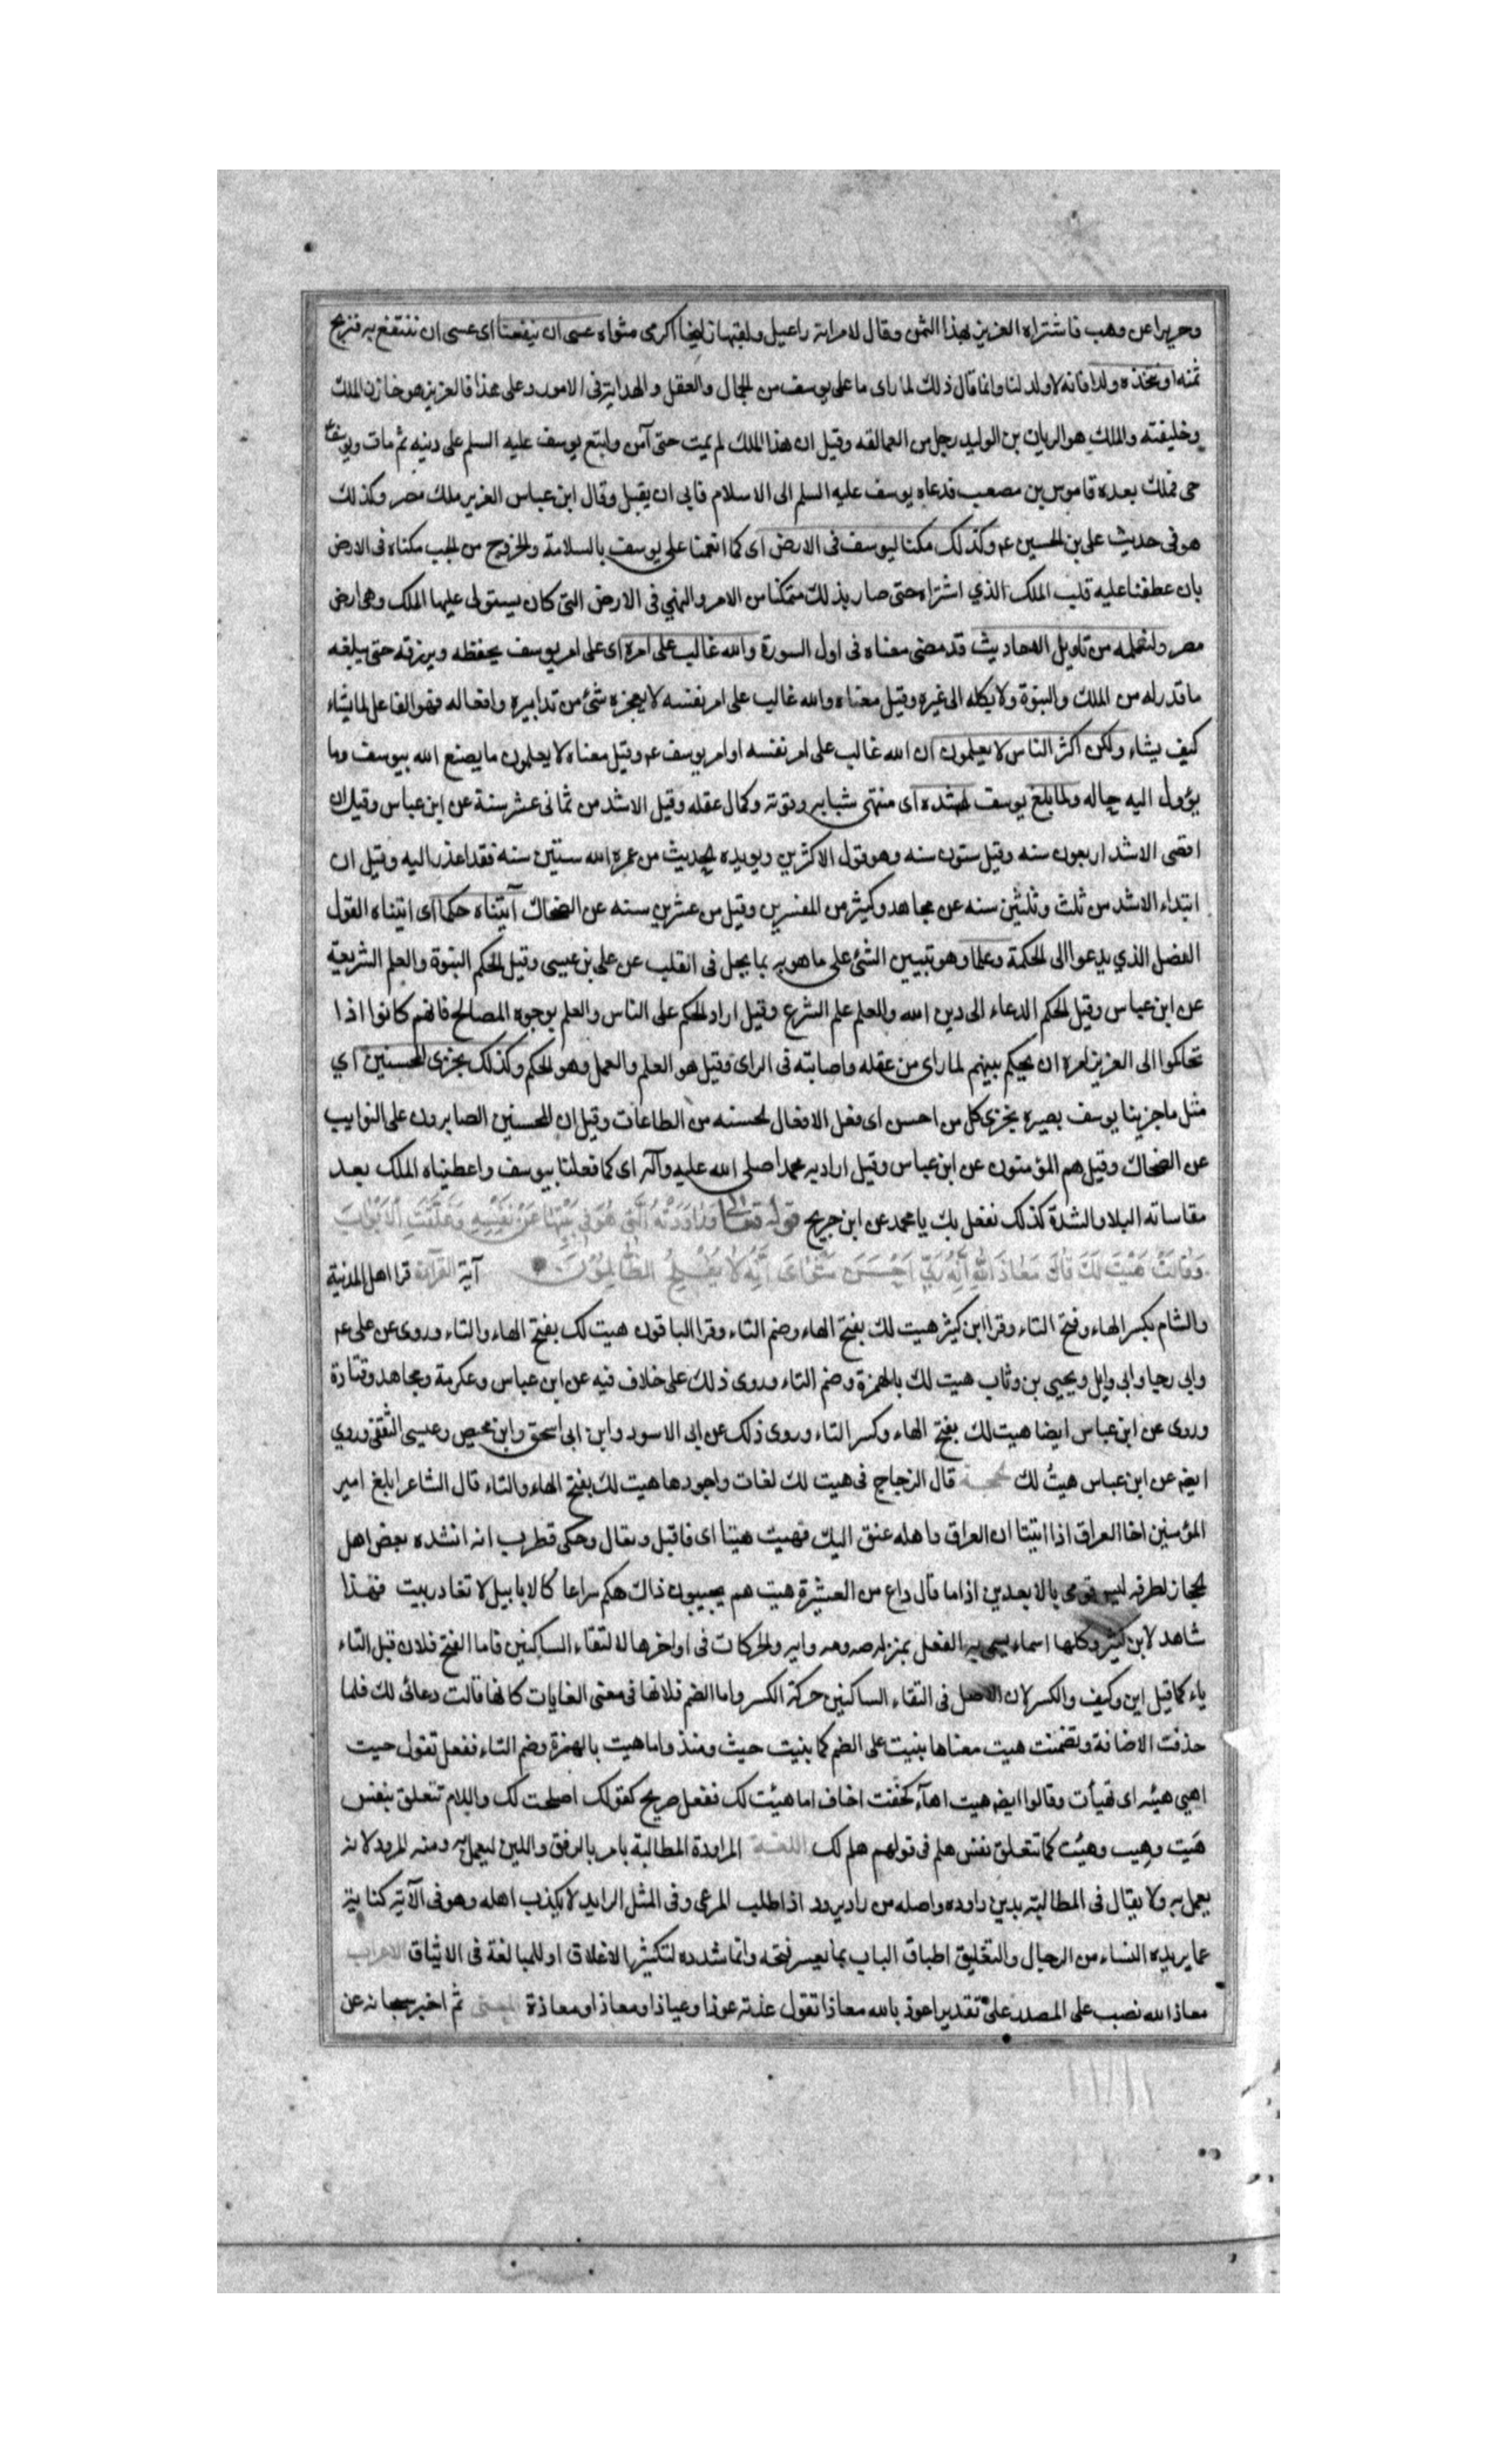 وحريرا عن وهب فاشتراه العزيز بهذا الثمن وقال لامراته راعيل ولقبها زليخا اكرمى مثواه عسى ان ينفعنا اى عسى ان ننتفع به فنربح
ثمنه او نتخذه ولدا فانه لا ولد لنا وانما قال ذلك لما راى ما على يوسف من الجمال والعقل والهداية فى الامور وعلى هذا فالعزيز هو خازن الملك
وخليفته والملك هو الريان بن الوليد رجل من العمالقه وقيل ان هذا الملك لم يمت حتى آمن واتبع يوسف عليه السلم على دينه ثم مات ويوسف
حى فملك بعده قاموس بن مصعب فدعاه يوسف عليه السلم الى الاسلام فابى ان يقبل وقال ابن عباس العزيز ملك مصر وكذلك
هو فى حديث على بن الحسين عم وكذلك مكنا ليوسف فى الارض اى كما انعمنا على يوسف بالسلامة والخروج من الجب مكناه فى الارض
بان عطفنا عليه قلب الملك الذي اشتراه حتى صار بذلك متمكنا من الامر والنهي فى الارض التى كان يستولى عليها الملك وهى ارض
مصر ولنعلمه من تاويل الاحاديث قد مضى معناه فى اول السورة والله غالب على امره اى على امر يوسف يحفظه ويرزقه حتى يبلغه
ما قدر له من الملك والنبوة ولا يكله الى غيره وقيل معناه والله غالب على امر نفسه لا يعجزه شئ من تدابيره وافعاله فهو الفاعل لما يشاء
كيف يشاء ولكن اكثر الناس لا يعلمون ان الله غالب على امر نفسه او امر يوسف عم وقيل معناه لا يعلمون ما يصنع الله بيوسف وما
يؤول اليه حاله ولما بلغ يوسف اشده اى منتهى شبابه وقوته وكمال عقله وقيل الاشد من ثمانى عشر سنة عن ابن عباس وقيل ان
اقصى الاشد اربعون سنه وقيل ستون سنه وهو قول الاكثرين ويويده الحديث من عمره الله ستين سنه فقد اعذر اليه وقيل ان
ابتداء الاشد من ثلث وثلثين سنه عن مجاهد وكثير من المفسرين وقيل من عشرين سنه عن الضحاك آتيناه حكما اى اتيناه القول
الفضل الذي يدعوا الى الحكمة وعلما وهو تبيين الشئ على ما هو به بما يحل فى القلب عن على بن عيسى وقيل الحكم النبوة والعلم الشريعة
عن ابن عباس وقيل الحكم الدعاء الى دين الله والعلم علم الشرع وقيل اراد الحكم على الناس والعلم بوجوه المصالح فانهم كانوا اذا
تحاكموا الى العزيز امره ان يحكم بينهم لما راى من عقله واصابته فى الراى وقيل هو العلم والعمل وهو الحكم وكذلك نجزى المحسنين اي
مثل ما جزينا يوسف بصبره نجزى كل من احسن اى فعل الافعال لحسنه من الطاعات وقيل ان المحسنين الصابرون على النوايب
عن الضحاك وقيل هم المؤمنون عن ابن عباس وقيل اراد به محمدا صلى الله عليه وآله اى كما فعلنا بيوسف واعطيناه الملك بعد
مقاساته البلاء والشدة كذلك نفعل بك يا محمد عن ابن جريج قوله تعالى وَرَاوَدَتْهُ الَّتِي هُوَ فِي بَيْتِهَا عَنْ نَفْسِهِ وَغَلَّقَتِ الْاَبْوَابَ
وَقَالَتْ هَيْتَ لَكَ قَالَ مَعَاذَ اللَّهِ اِنَّهُ رَبِّي اَحْسَنَ مَثْوَايَ اِنَّهُ لَا يُفْلِحُ الظَّالِمُونَ آية القرآءة قرا اهل المدنية
والشام بكسر الهاء وفتح التاء وقرا ابن كثير هيت لك بفتح الهاء وضم التاء وقرا الباقون هيت لك بفتح الهاء والتاء وروى عن على عم
وابى رجا وابى وايل ويحيى بن وثاب هيت لك بالهمزة وضم التاء وروى ذلك على خلاف فيه عن ابن عباس وعكرمة ومجاهد وقتادة
وروى عن ابن عباس ايضا هيت لك بفتح الهاء وكسر التاء وروى ذلك عن ابى الاسود وابن ابى اسحق وابن محيص وعيسى الثقفى وروي
ايض عن ابن عباس هيتُ لك الحجة قال الزجاج فى هيت لك لغات واجودها هيت لك بفتح الهاء والتاء قال الشاعر ابلغ امير
المؤمنين اخا العراق اذا اتيتا ان العراق واهله عنق اليك فهيت هيتا اى فاقبل وتعال وحكى قطرب انه انشده بعض اهل
الحجاز لطرفه ليس قومى بالابعدين اذا ما قال داع من العشيرة هيت هم يجيبون ذاك هكم سراعا كالابابيل لا تغادر بيت فهذا
شاهد لابن كثير وكلها اسماء سمى به الفعل بمنزله صه ومه وايه والحركات فى اواخرها لالتقاء الساكنين فاما الفتح فلان قبل التاء
ياء كما قيل اين وكيف والكسر لان الاصل فى التقاء الساكنين حركة الكسر واما الضم فلانها فى معنى الغايات كانها قالت دعائى لك فلما
حذفت الاضافة وتضمنت هيت معناها بنيت على الضم كما بنيت حيث ومنذ واما هيت بالهمزة وضم التاء ففعل تقول هيت
اهيى هيئه اى تهيأت وقالوا ايض هيت اهآء كخفت اخاف اما هيئت لك ففعل صريح كقولك اصلحت لك واللام تتعلق بنفس
هَيت وهِيت وهيئت كما تتعلق بنفس هلم فى قولهم هلم لك اللغة المراودة المطالبة بامر بالرفق واللين ليعمل به ومنه المرود لانه
يعمل به ولا يقال فى المطالبة بدين راوده واصله من راد يرود اذا طلب المرعى وفى المثل الرايد لا يكذب اهله وهو فى الآية كناية
عما يريده النساء من الرجال والتغليق اطباق الباب بما يعسر فتحه وانما شدده لتكثيرها الاغلاق او للمبالغة فى الايثاق الاعراب
معاذ الله نصب على المصدر على تقدير اعوذ بالله معاذا تقول عذته عوذا وعياذا ومعاذا ومعاذة المعنى ثم اخبر سبحانه عن